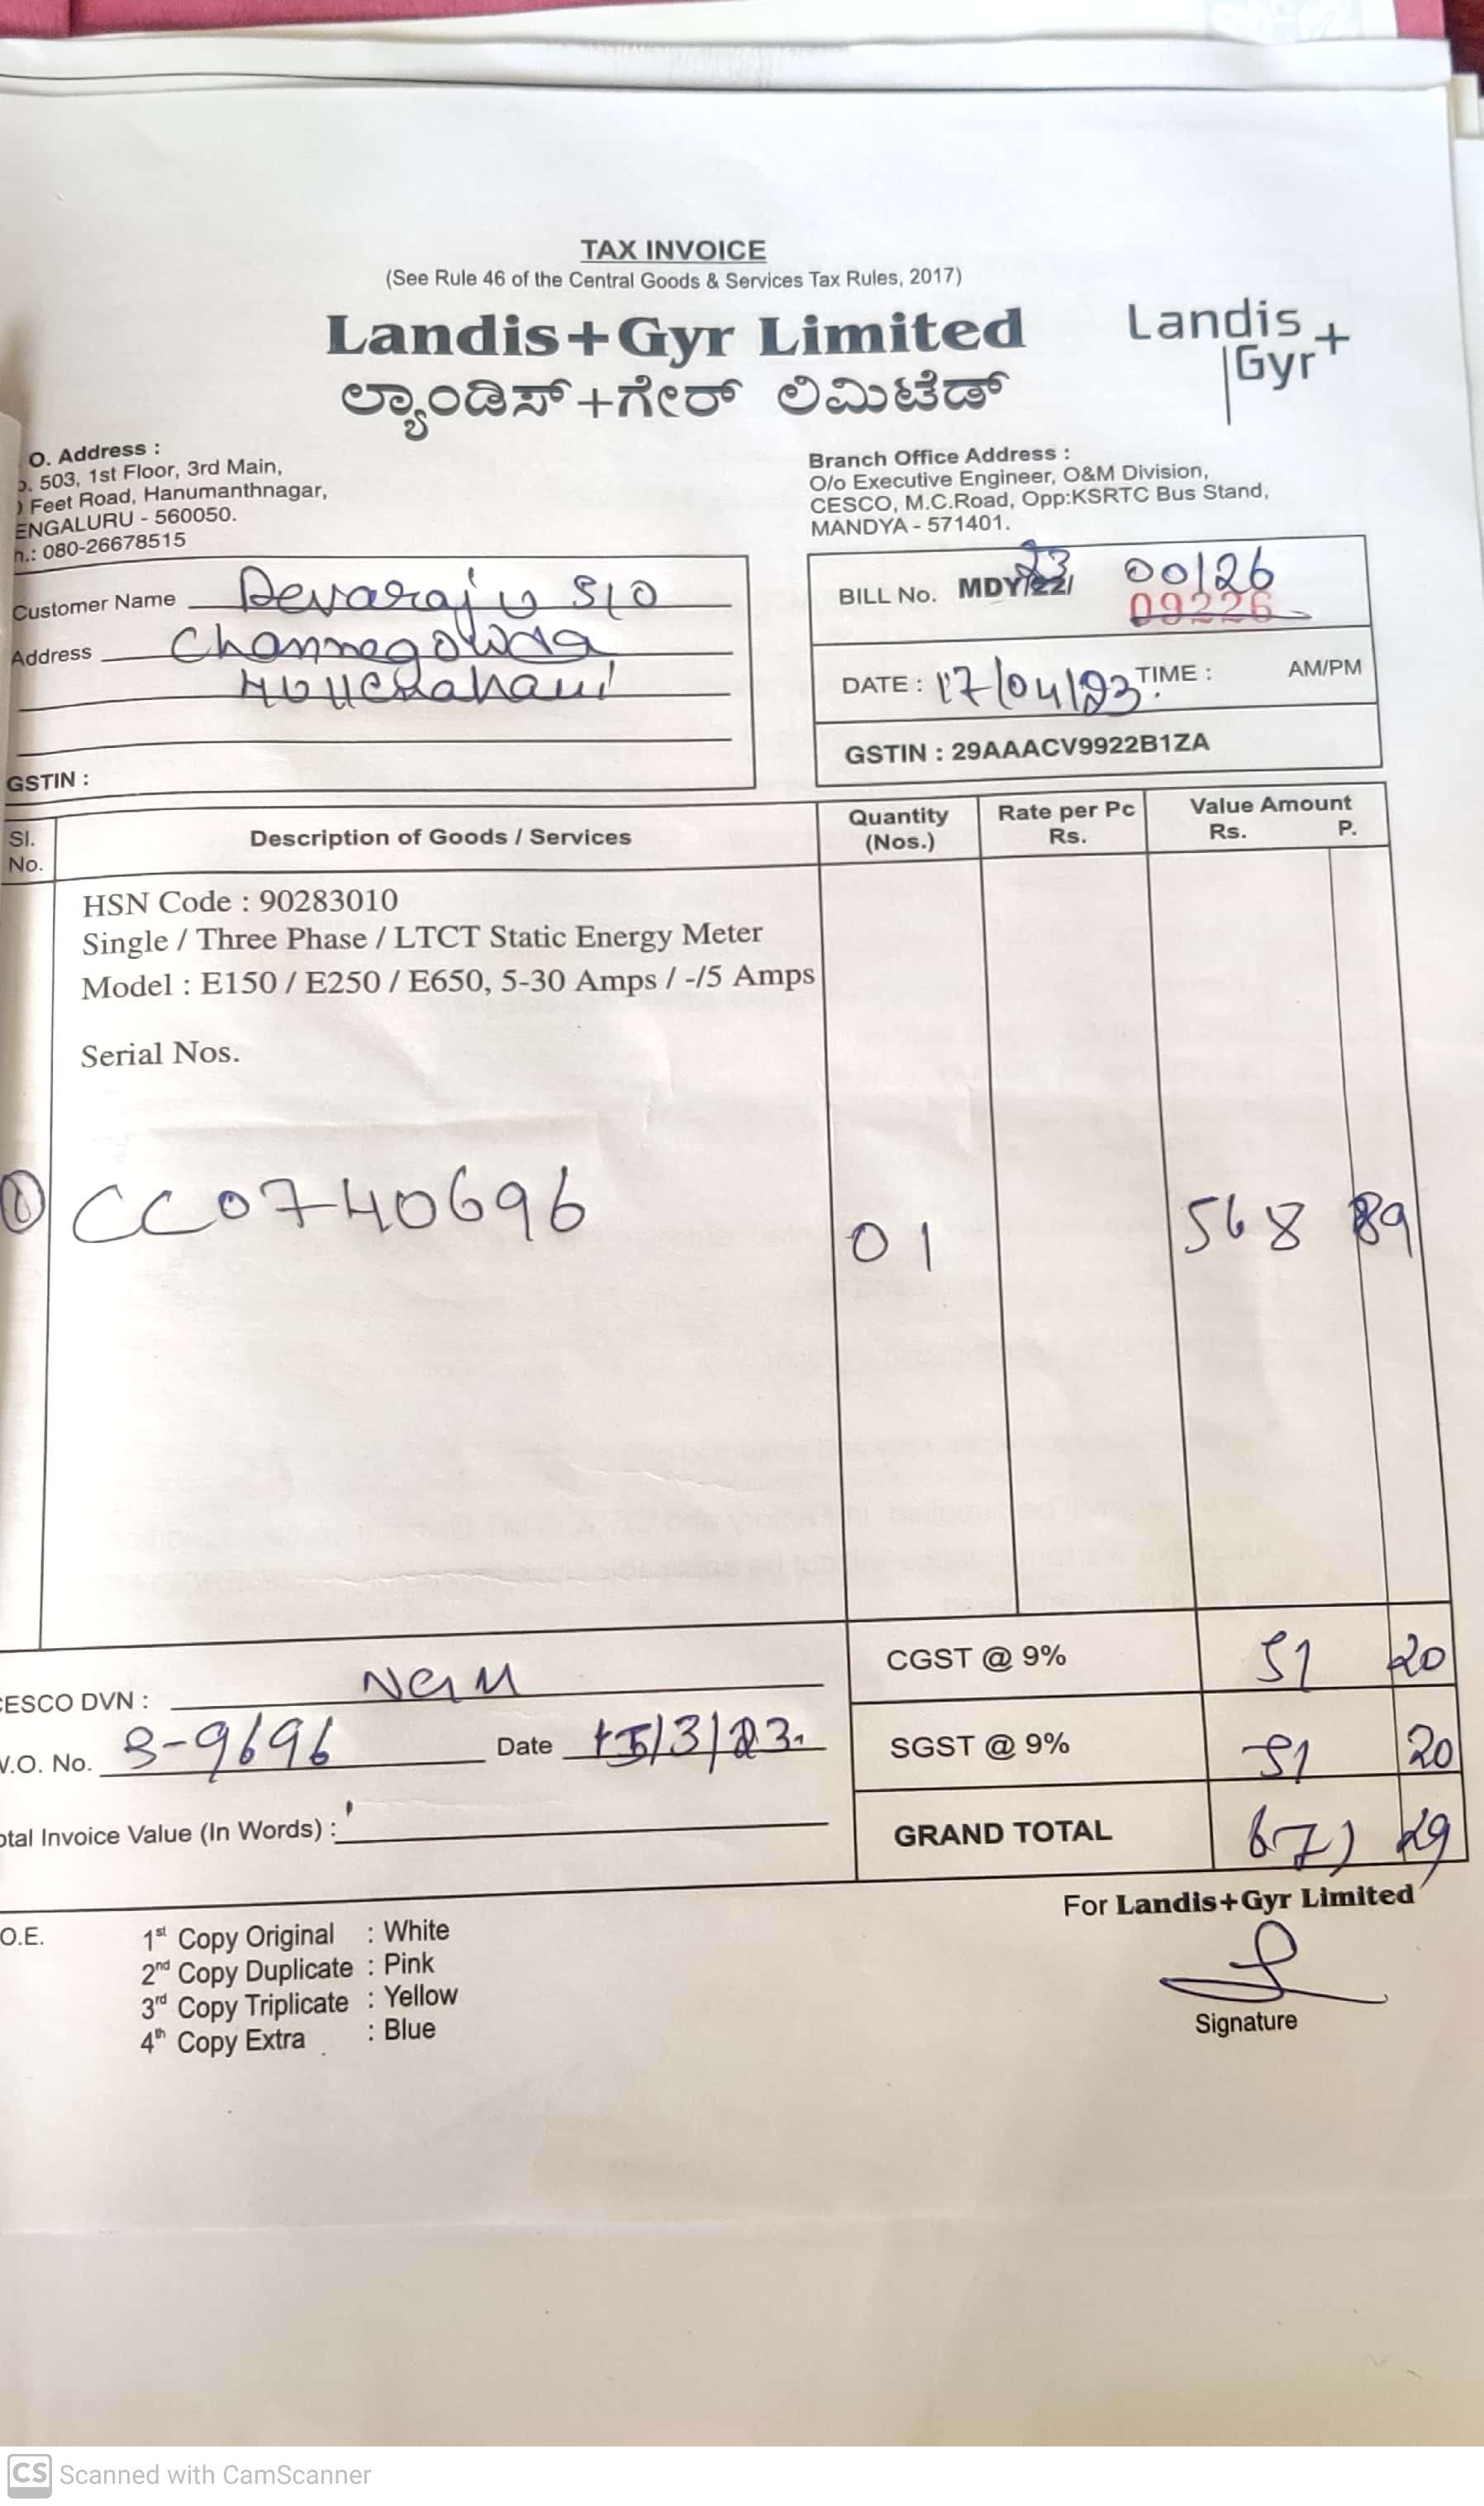 TAX INVOICE
(See Rule 46 of the Central Goods & Services Tax Rules, 2017)
Landis+Gyr Limited
ಲ್ಯಾಂಡಿಸ್+ಗೇರ್ ಲಿಮಿಟೆಡ್
Landis
Gyr+
O. Address :
503, 1st Floor, 3rd Main,
Feet Road, Hanumanthnagar,
ENGALURU - 560050.
h.: 080-26678515
Branch Office Address :
O/o Executive Engineer, O&M Division,
CESCO, M.C.Road, Opp:KSRTC Bus Stand,
MANDYA - 571401.
Customer Name Devaraju S/O
Address Channegowda
GSTIN :
BILL No. MDY/22/ 23 00126
09226
DATE : 17/04/23 TIME : AM/PM
GSTIN : 29AAACV9922B1ZA
Sl. No. Description of Goods / Services Quantity (Nos.) Rate per Pc Rs. Value Amount Rs. P.
HSN Code : 90283010
Single / Three Phase / LTCT Static Energy Meter
Model : E150 / E250 / E650, 5-30 Amps / -/5 Amps
Serial Nos.
CC0740696 01 568 89
CGST @ 9% 51 20
ESCO DVN : NGM
SGST @ 9% 51 20
V.O. No. S-9696 Date 15/3/23.
GRAND TOTAL 671 29
otal Invoice Value (In Words) :
For Landis+Gyr Limited
O.E.
1st Copy Original : White
2nd Copy Duplicate : Pink
3rd Copy Triplicate : Yellow
4th Copy Extra : Blue
Signature
CS Scanned with CamScanner